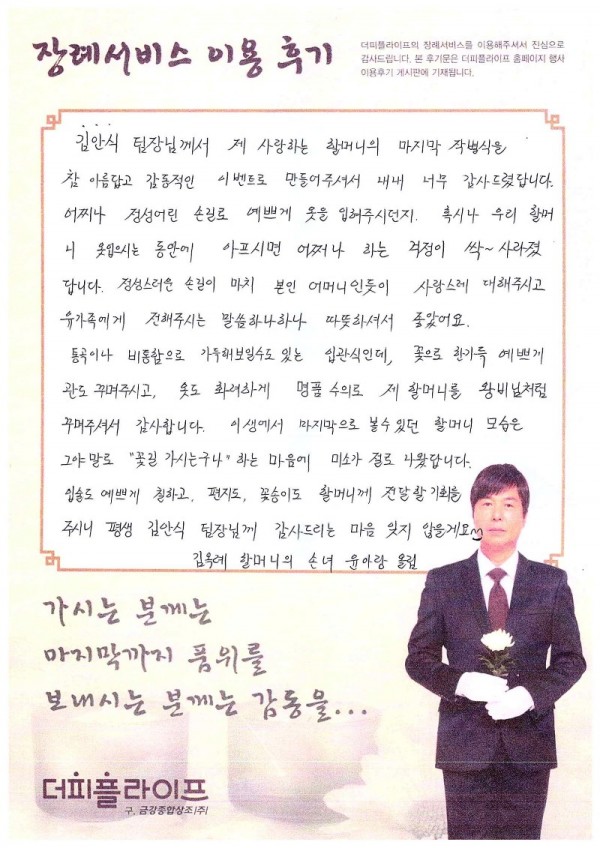 장례서비스 이용 후기
더피플라이프의 장례서비스를 이용해주셔서 진심으로
감사드립니다. 본 후기문은 더피플라이프 홈페이지 행사
이용후기 게시판에 기재됩니다.
김안식 팀장님께서 제 사랑하는 할머니의 마지막 작별식을
참 아름답고 감동적인 이벤트로 만들어주셔서 내내 너무 감사드렸답니다.
어찌나 정성어린 손길로 예쁘게 옷을 입혀주시던지. 혹시나 우리 할머
니 옷입으시는 동안에 아프시면 어쩌나 하는 걱정이 싹~ 사라졌
답니다. 정성스러운 손길이 마치 본인 어머니인듯이 사랑스레 대해주시고
유가족에게 전해주시는 말씀하나하나 따뜻하셔서 좋았어요.
통곡이나 비통함으로 가득해보일수도 있는 입관식인데, 꽃으로 한가득 예쁘게
관도 꾸며주시고, 옷도 화려하게 명품 수의로 제 할머니를 왕비님처럼
꾸며주셔서 감사합니다. 이생에서 마지막으로 볼수 있던 할머니 모습은
그야말로 "꽃길 가시는구나" 하는 마음에 미소가 절로 나왔답니다.
입술도 예쁘게 칠하고, 편지도, 꽃송이도 할머니께 전달할 기회를
주시니 평생 김안식 팀장님께 감사드리는 마음 잊지 않을게요
김옥례 할머니의 손녀 윤아랑 올림
가시는 분께는
마지막까지 품위를
보내시는 분께는 감동을...
더피플라이프
구. 금강종합상조(주)